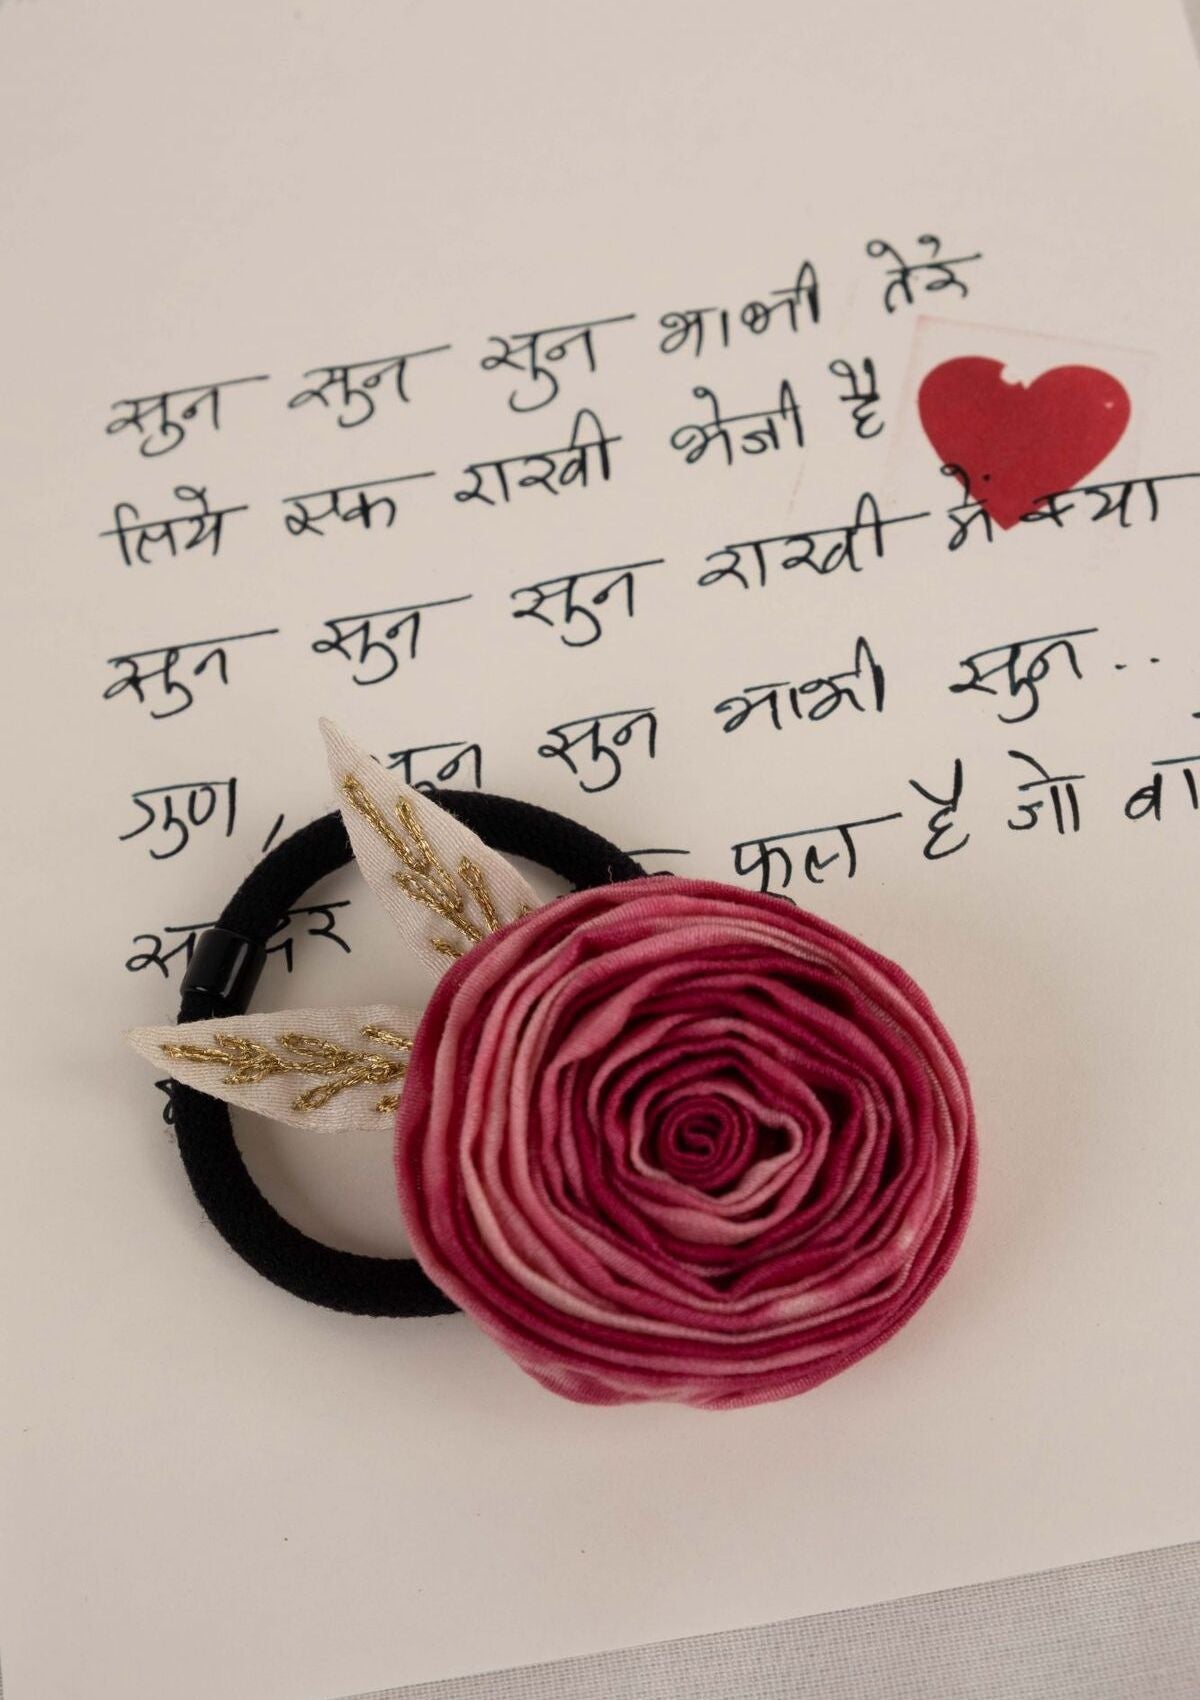 सुन सुन सुन भाभी तेरे
लिये एक राखी भेजी है
सुन सुन सुन राखी में क्या
गुण, सुन सुन भाभी सुन..
फूल है जो बा